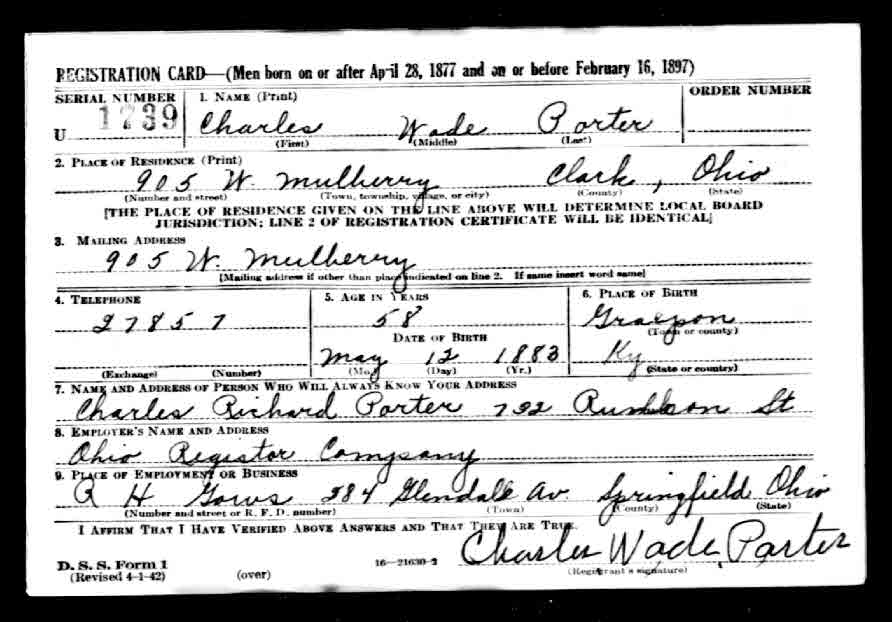 REGISTRATION CARD—(Men born on or after April 28, 1877 and on or before February 16, 1897)
SERIAL NUMBER 1. NAME (Print) ORDER NUMBER
U 1739 Charles Wade Porter
(First) (Middle) (Last)
2. PLACE OF RESIDENCE (Print)
905 W. Mulberry Clark, Ohio
(Number and street) (Town, township, village, or city) (County) (State)
[THE PLACE OF RESIDENCE GIVEN ON THE LINE ABOVE WILL DETERMINE LOCAL BOARD
JURISDICTION; LINE 2 OF REGISTRATION CERTIFICATE WILL BE IDENTICAL]
3. MAILING ADDRESS
905 W. Mulberry
[Mailing address if other than place indicated on line 2. If same insert word same]
4. TELEPHONE 5. AGE IN YEARS 6. PLACE OF BIRTH
27857 58
(Town or county)
DATE OF BIRTH
May 12 1883 Ky
(Exchange) (Number) (Mo.) (Day) (Yr.) (State or country)
7. NAME AND ADDRESS OF PERSON WHO WILL ALWAYS KNOW YOUR ADDRESS
Charles Richard Porter 732 St
8. EMPLOYER'S NAME AND ADDRESS
Ohio Registor Compsany
9. PLACE OF EMPLOYMENT OR BUSINESS
R H 284 Glendale Av. Springfield Ohio
(Number and street or R. F. D. number) (Town) (County) (State)
I AFFIRM THAT I HAVE VERIFIED ABOVE ANSWERS AND THAT THEY ARE TRUE.
Charles Wade Porter
D. S. S. Form 1 16—21630-2 (Registrant's signature)
(Revised 4-1-42) (over)